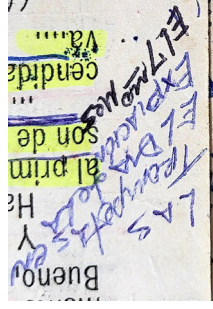 Bueno,
Y
al prim
son de
...
cendida
va....
LAS
Trompetas en
EL DIA de la
EXPIACION
EL 7 mo mes